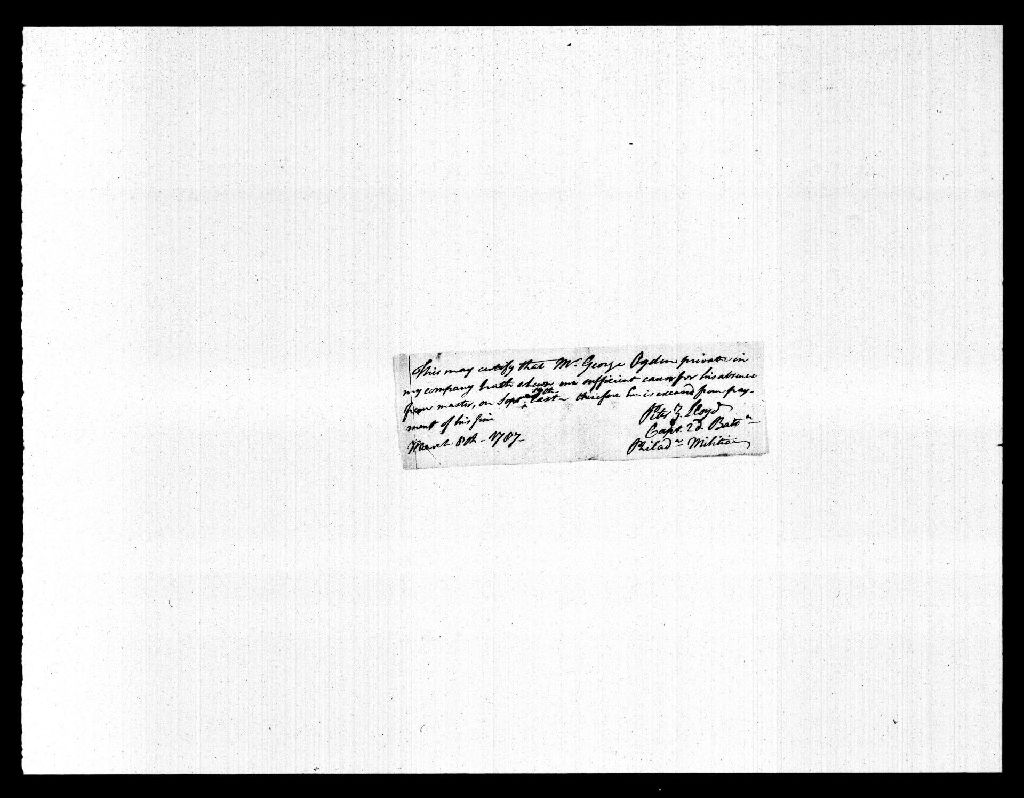 This may certify that Mr. George Ogden private in
my company hath shewn me sufficient cause for his absence
from muster, on Sept. 19th last – therefore he is excused from pay-
ment of his fine
March 8th – 1787 –
Peter Z. Lloyd
Capt. 2d. Batn
Philada. Militia